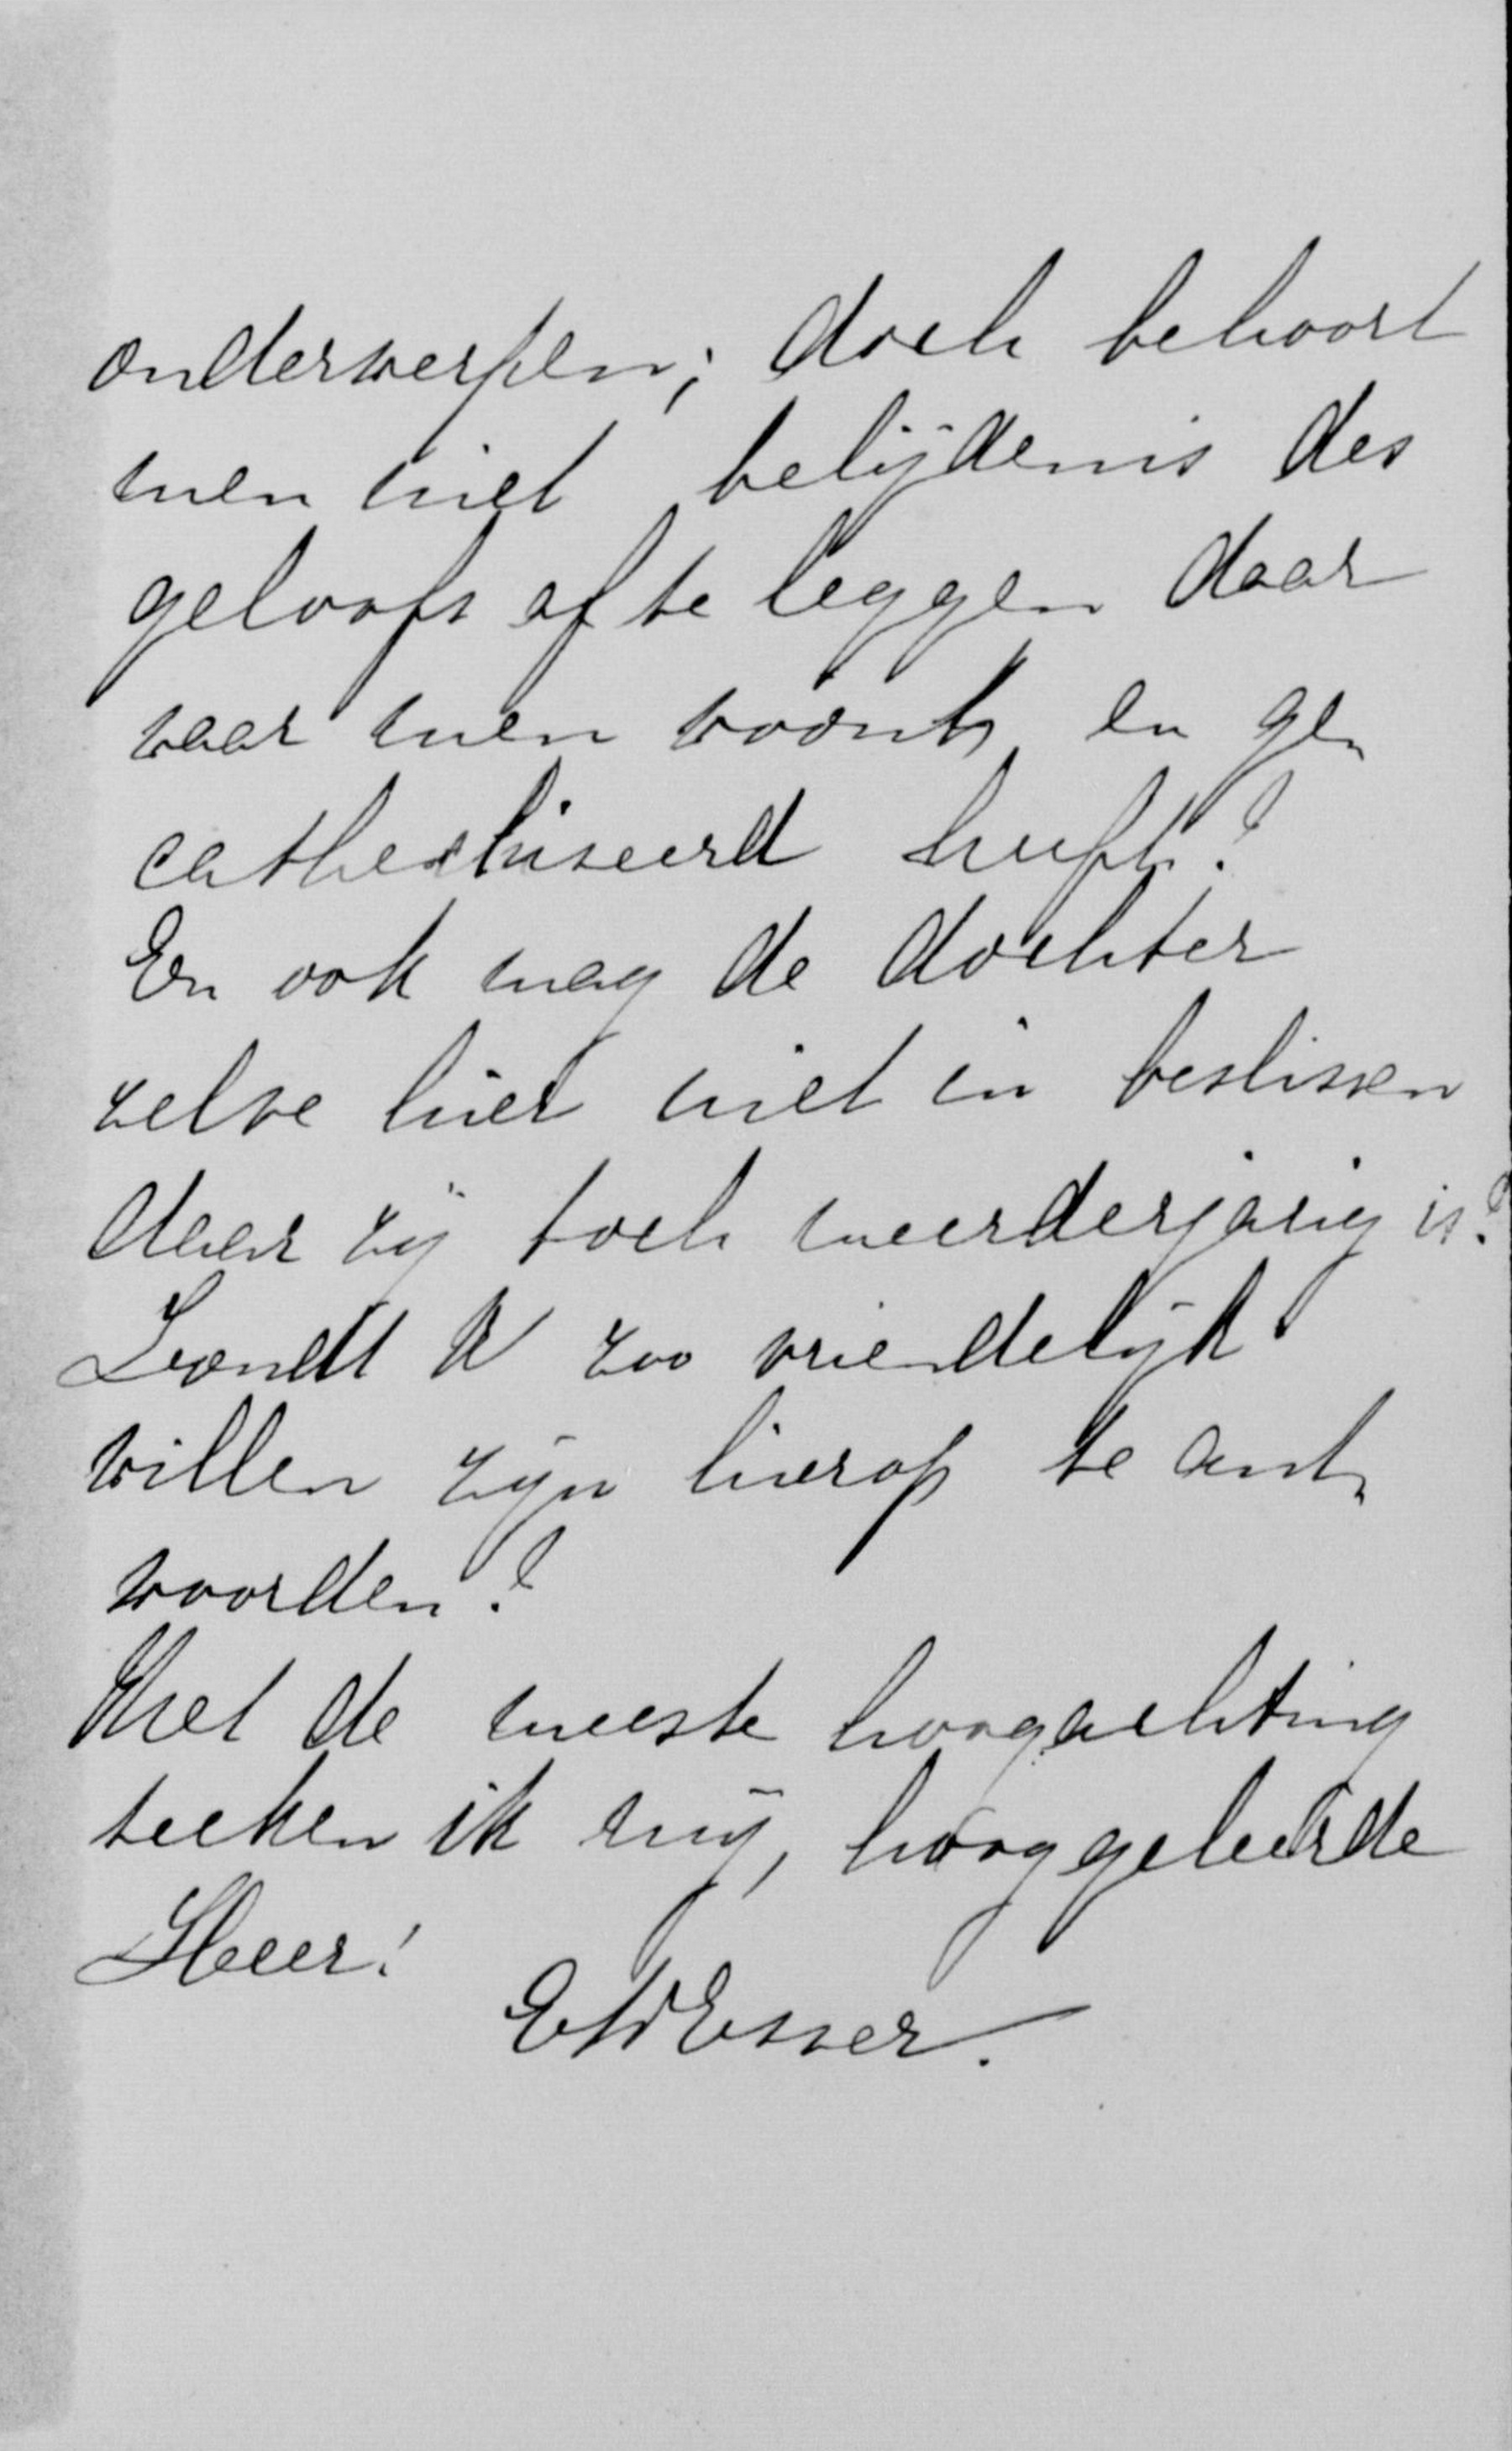 onderwerpen; doch behoort
men niet belijdenis des
geloofs af te leggen daar
waar men woont, en ge-
cathechiseerd heeft?
En ook mag de dochter
zelve hier niet in beslissen
daar zij toch meerderjarig is?
Zoudt U zoo vriendelijk
willen zijn hierop te ant-
woorden?
Met de meeste hoogachting
teeken ik mij, hooggeleerde
Heer!
EWEsser.